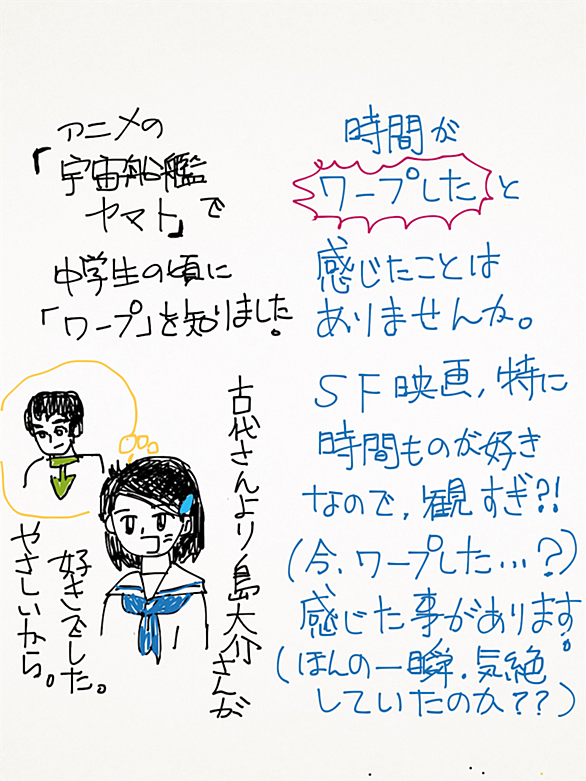 時間が
ワープしたと
感じたことは
ありませんか。
SF映画,特に
時間ものが好き
なので,観すぎ?!
(今,ワープした…?)
感じた事があります。
(ほんの一瞬.気絶
していたのか??)
アニメの
「宇宙船艦
ヤマト」で
中学生の頃に
「ワープ」を知りました。
古代さんより島大介さんが
好きでした。
やさしいから。